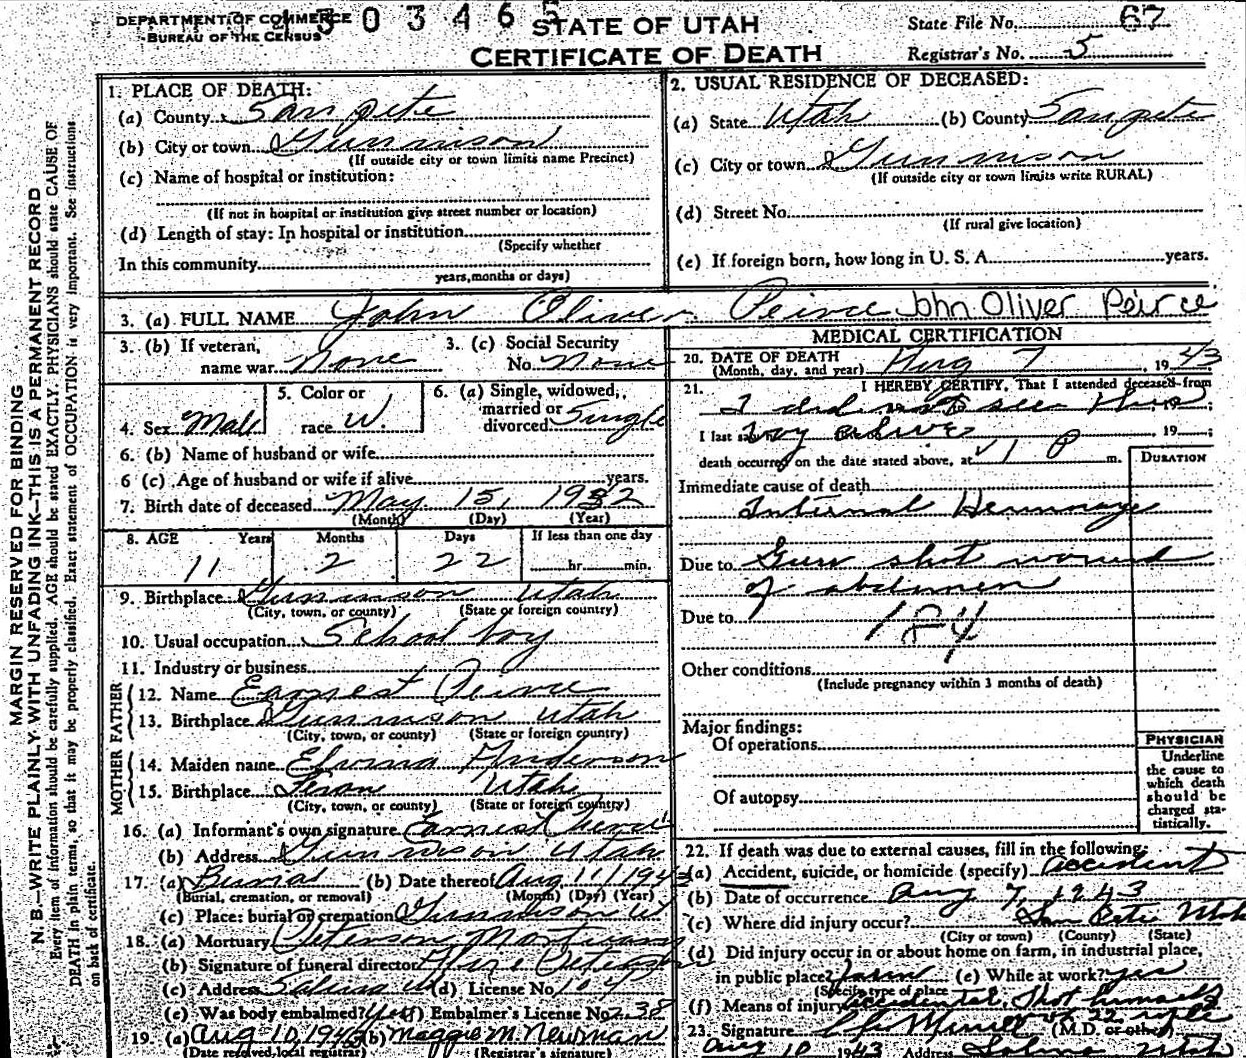 DEPARTMENT OF COMMERCE
BUREAU OF THE CENSUS
503465
STATE OF UTAH
CERTIFICATE OF DEATH
State File No. 67
Registrar's No. 5
MARGIN RESERVED FOR BINDING
N. B.—WRITE PLAINLY WITH UNFADING INK—THIS IS A PERMANENT RECORD
Every item of information should be carefully supplied. AGE should be stated EXACTLY. PHYSICIANS should state CAUSE OF
DEATH in plain terms, so that it may be properly classified. Exact statement of OCCUPATION is very important. See instructions
on back of certificate.
1. PLACE OF DEATH:
(a) County Sanpete
(b) City or town Gunnison
(If outside city or town limits name Precinct)
(c) Name of hospital or institution:
(If not in hospital or institution give street number or location)
(d) Length of stay: In hospital or institution
(Specify whether
In this community
years, months or days)
2. USUAL RESIDENCE OF DECEASED:
(a) State Utah (b) County Sanpete
(c) City or town Gunnison
(If outside city or town limits write RURAL)
(d) Street No.
(If rural give location)
(e) If foreign born, how long in U. S. A. years.
3. (a) FULL NAME John Oliver Peirce John Oliver Peirce
3. (b) If veteran, name war None
3. (c) Social Security No. None
4. Sex Male
5. Color or race W.
6. (a) Single, widowed, married or divorced Single
6. (b) Name of husband or wife
6 (c) Age of husband or wife if alive years.
7. Birth date of deceased May 15, 1932
(Month) (Day) (Year)
8. AGE Years Months Days If less than one day
11 2 22 hr. min.
9. Birthplace Gunnison Utah
(City, town, or county) (State or foreign country)
10. Usual occupation School boy
11. Industry or business
FATHER
12. Name Earnest Peirce
13. Birthplace Gunnison Utah
(City, town, or county) (State or foreign country)
MOTHER
14. Maiden name Anderson
15. Birthplace Utah
(City, town, or county) (State or foreign country)
16. (a) Informant's own signature Earnest Peirce
(b) Address Gunnison Utah
17. (a) Burial (b) Date thereof Aug 11, 1943
(Burial, cremation, or removal) (Month) (Day) (Year)
(c) Place: burial or cremation Gunnison Ut
18. (a) Mortuary Peterson Mortuary
(b) Signature of funeral director Peterson
(c) Address Salina Ut (d) License No. 104
(e) Was body embalmed? Yes (f) Embalmer's License No. 238
19. (a) Aug 10, 1943 (b) Maggie M. Newman
(Date received local registrar) (Registrar's signature)
MEDICAL CERTIFICATION
20. DATE OF DEATH Aug 7, 1943
(Month, day, and year)
21. I HEREBY CERTIFY, That I attended deceased from
I did not see this 19 ;
I last saw boy alive , 19 ;
death occurred on the date stated above, at 1 P m.
DURATION
Immediate cause of death
Internal Hemorrage
Due to Gun shot wound
of abdomen
Due to
184
Other conditions
(Include pregnancy within 3 months of death)
Major findings:
Of operations
Of autopsy
PHYSICIAN
Underline
the cause to
which death
should be
charged sta-
tistically.
22. If death was due to external causes, fill in the following:
(a) Accident, suicide, or homicide (specify) accident
(b) Date of occurrence Aug 7, 1943
(c) Where did injury occur? San Pete Utah
(City or town) (County) (State)
(d) Did injury occur in or about home on farm, in industrial place,
in public place? farm (e) While at work? yes
(Specify type of place
(f) Means of injury accidental, shot himself
23. Signature of 22 rifle (M.D. or other)
Aug 10 1943 Address Salina Utah